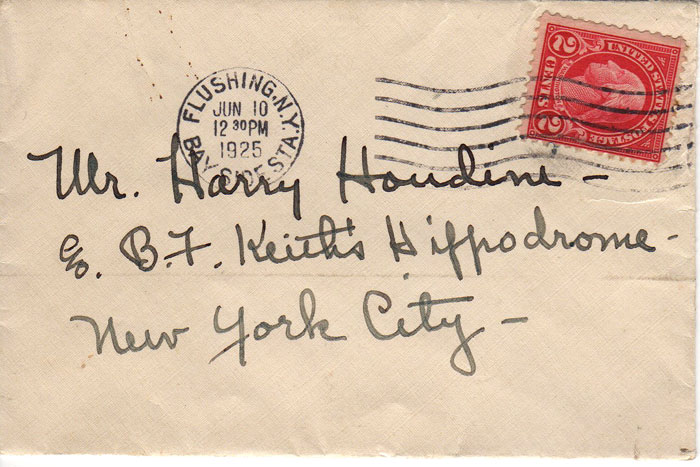 FLUSHING, N.Y.
JUN 10
12 30 PM
1925
BAYSIDE STA.
UNITED STATES POSTAGE
2 CENTS 2
Mr. Harry Houdini -
c/o. B.F. Keith's Hippodrome -
New York City -